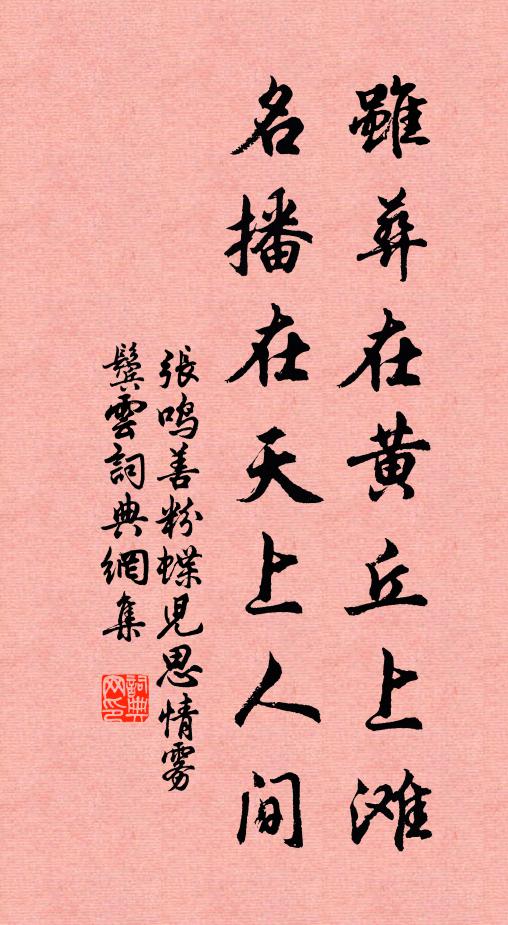 雖葬在黄丘上滩
名播在天上人间
張鳴善粉蝶児思情雾
鬓雲詞典網集
詞典网印